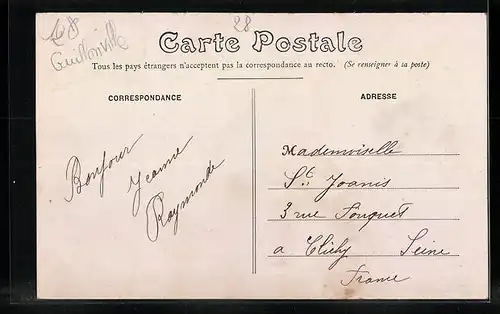 28
28
Guillonville
Carte Postale
Tous les pays étrangers n'acceptent pas la correspondance au recto. (Se renseigner à la poste)
CORRESPONDANCE
Bonjour
Jeanne
Raymonde
ADRESSE
Mademoiselle
St. Joanis
3 rue Fouquet
a Clichy Seine
France